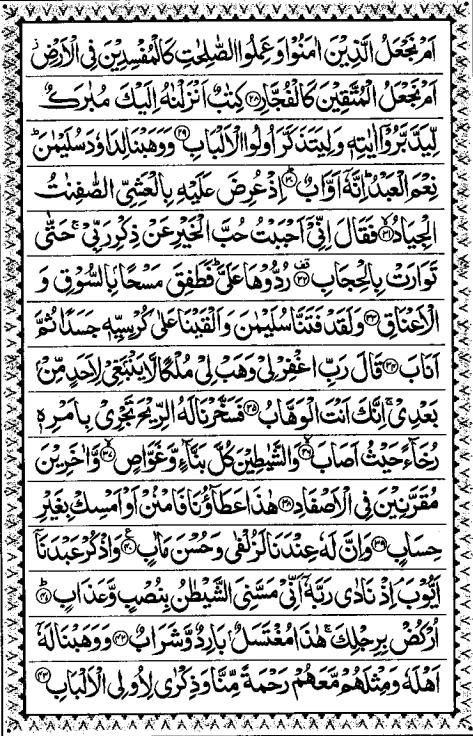 اَمۡ نَجۡعَلُ الَّذِيۡنَ اٰمَنُوۡا وَعَمِلُوا الصّٰلِحٰتِ كَالۡمُفۡسِدِيۡنَ فِى الۡاَرۡضِ
اَمۡ نَجۡعَلُ الۡمُتَّقِيۡنَ كَالۡفُجَّارِ ﴿۲۸﴾ كِتٰبٌ اَنۡزَلۡنٰهُ اِلَيۡكَ مُبٰرَكٌ
لِّيَدَّبَّرُوۡۤا اٰيٰتِهٖ وَلِيَتَذَكَّرَ اُولُوا الۡاَلۡبَابِ ﴿۲۹﴾ وَوَهَبۡنَا لِدَاوٗدَ سُلَيۡمٰنَ ؕ
نِعۡمَ الۡعَبۡدُ ؕ اِنَّهٗۤ اَوَّابٌ ﴿۳۰﴾ اِذۡ عُرِضَ عَلَيۡهِ بِالۡعَشِىِّ الصّٰفِنٰتُ
الۡجِيَادُ ﴿۳۱﴾ فَقَالَ اِنِّىۡۤ اَحۡبَبۡتُ حُبَّ الۡخَيۡرِ عَنۡ ذِكۡرِ رَبِّىۡ ۚ حَتّٰى
تَوَارَتۡ بِالۡحِجَابِ ﴿۳۲﴾ رُدُّوۡهَا عَلَىَّ ؕ فَطَفِقَ مَسۡحًۢا بِالسُّوۡقِ وَ
الۡاَعۡنَاقِ ﴿۳۳﴾ وَلَقَدۡ فَتَنَّا سُلَيۡمٰنَ وَاَلۡقَيۡنَا عَلٰى كُرۡسِيِّهٖ جَسَدًا ثُمَّ
اَنَابَ ﴿۳۴﴾ قَالَ رَبِّ اغۡفِرۡ لِىۡ وَهَبۡ لِىۡ مُلۡكًا لَّا يَنۡۢبَغِىۡ لِاَحَدٍ مِّنۡۢ
بَعۡدِىۡ ۚ اِنَّكَ اَنۡتَ الۡوَهَّابُ ﴿۳۵﴾ فَسَخَّرۡنَا لَهُ الرِّيۡحَ تَجۡرِىۡ بِاَمۡرِهٖ
رُخَآءً حَيۡثُ اَصَابَ ﴿۳۶﴾ وَالشَّيٰطِيۡنَ كُلَّ بَنَّآءٍ وَّغَوَّاصٍ ﴿۳۷﴾ وَّاٰخَرِيۡنَ
مُقَرَّنِيۡنَ فِى الۡاَصۡفَادِ ﴿۳۸﴾ هٰذَا عَطَآؤُنَا فَامۡنُنۡ اَوۡ اَمۡسِكۡ بِغَيۡرِ
حِسَابٍ ﴿۳۹﴾ وَاِنَّ لَهٗ عِنۡدَنَا لَزُلۡفٰى وَحُسۡنَ مَاٰبٍ ﴿۴۰﴾ وَاذۡكُرۡ عَبۡدَنَاۤ
اَيُّوۡبَ ۘ اِذۡ نَادٰى رَبَّهٗۤ اَنِّىۡ مَسَّنِىَ الشَّيۡطٰنُ بِنُصۡبٍ وَّعَذَابٍ ﴿۴۱﴾
اُرۡكُضۡ بِرِجۡلِكَ ۚ هٰذَا مُغۡتَسَلٌۢ بَارِدٌ وَّشَرَابٌ ﴿۴۲﴾ وَوَهَبۡنَا لَهٗۤ
اَهۡلَهٗ وَمِثۡلَهُمۡ مَّعَهُمۡ رَحۡمَةً مِّنَّا وَذِكۡرٰى لِاُولِى الۡاَلۡبَابِ ﴿۴۳﴾